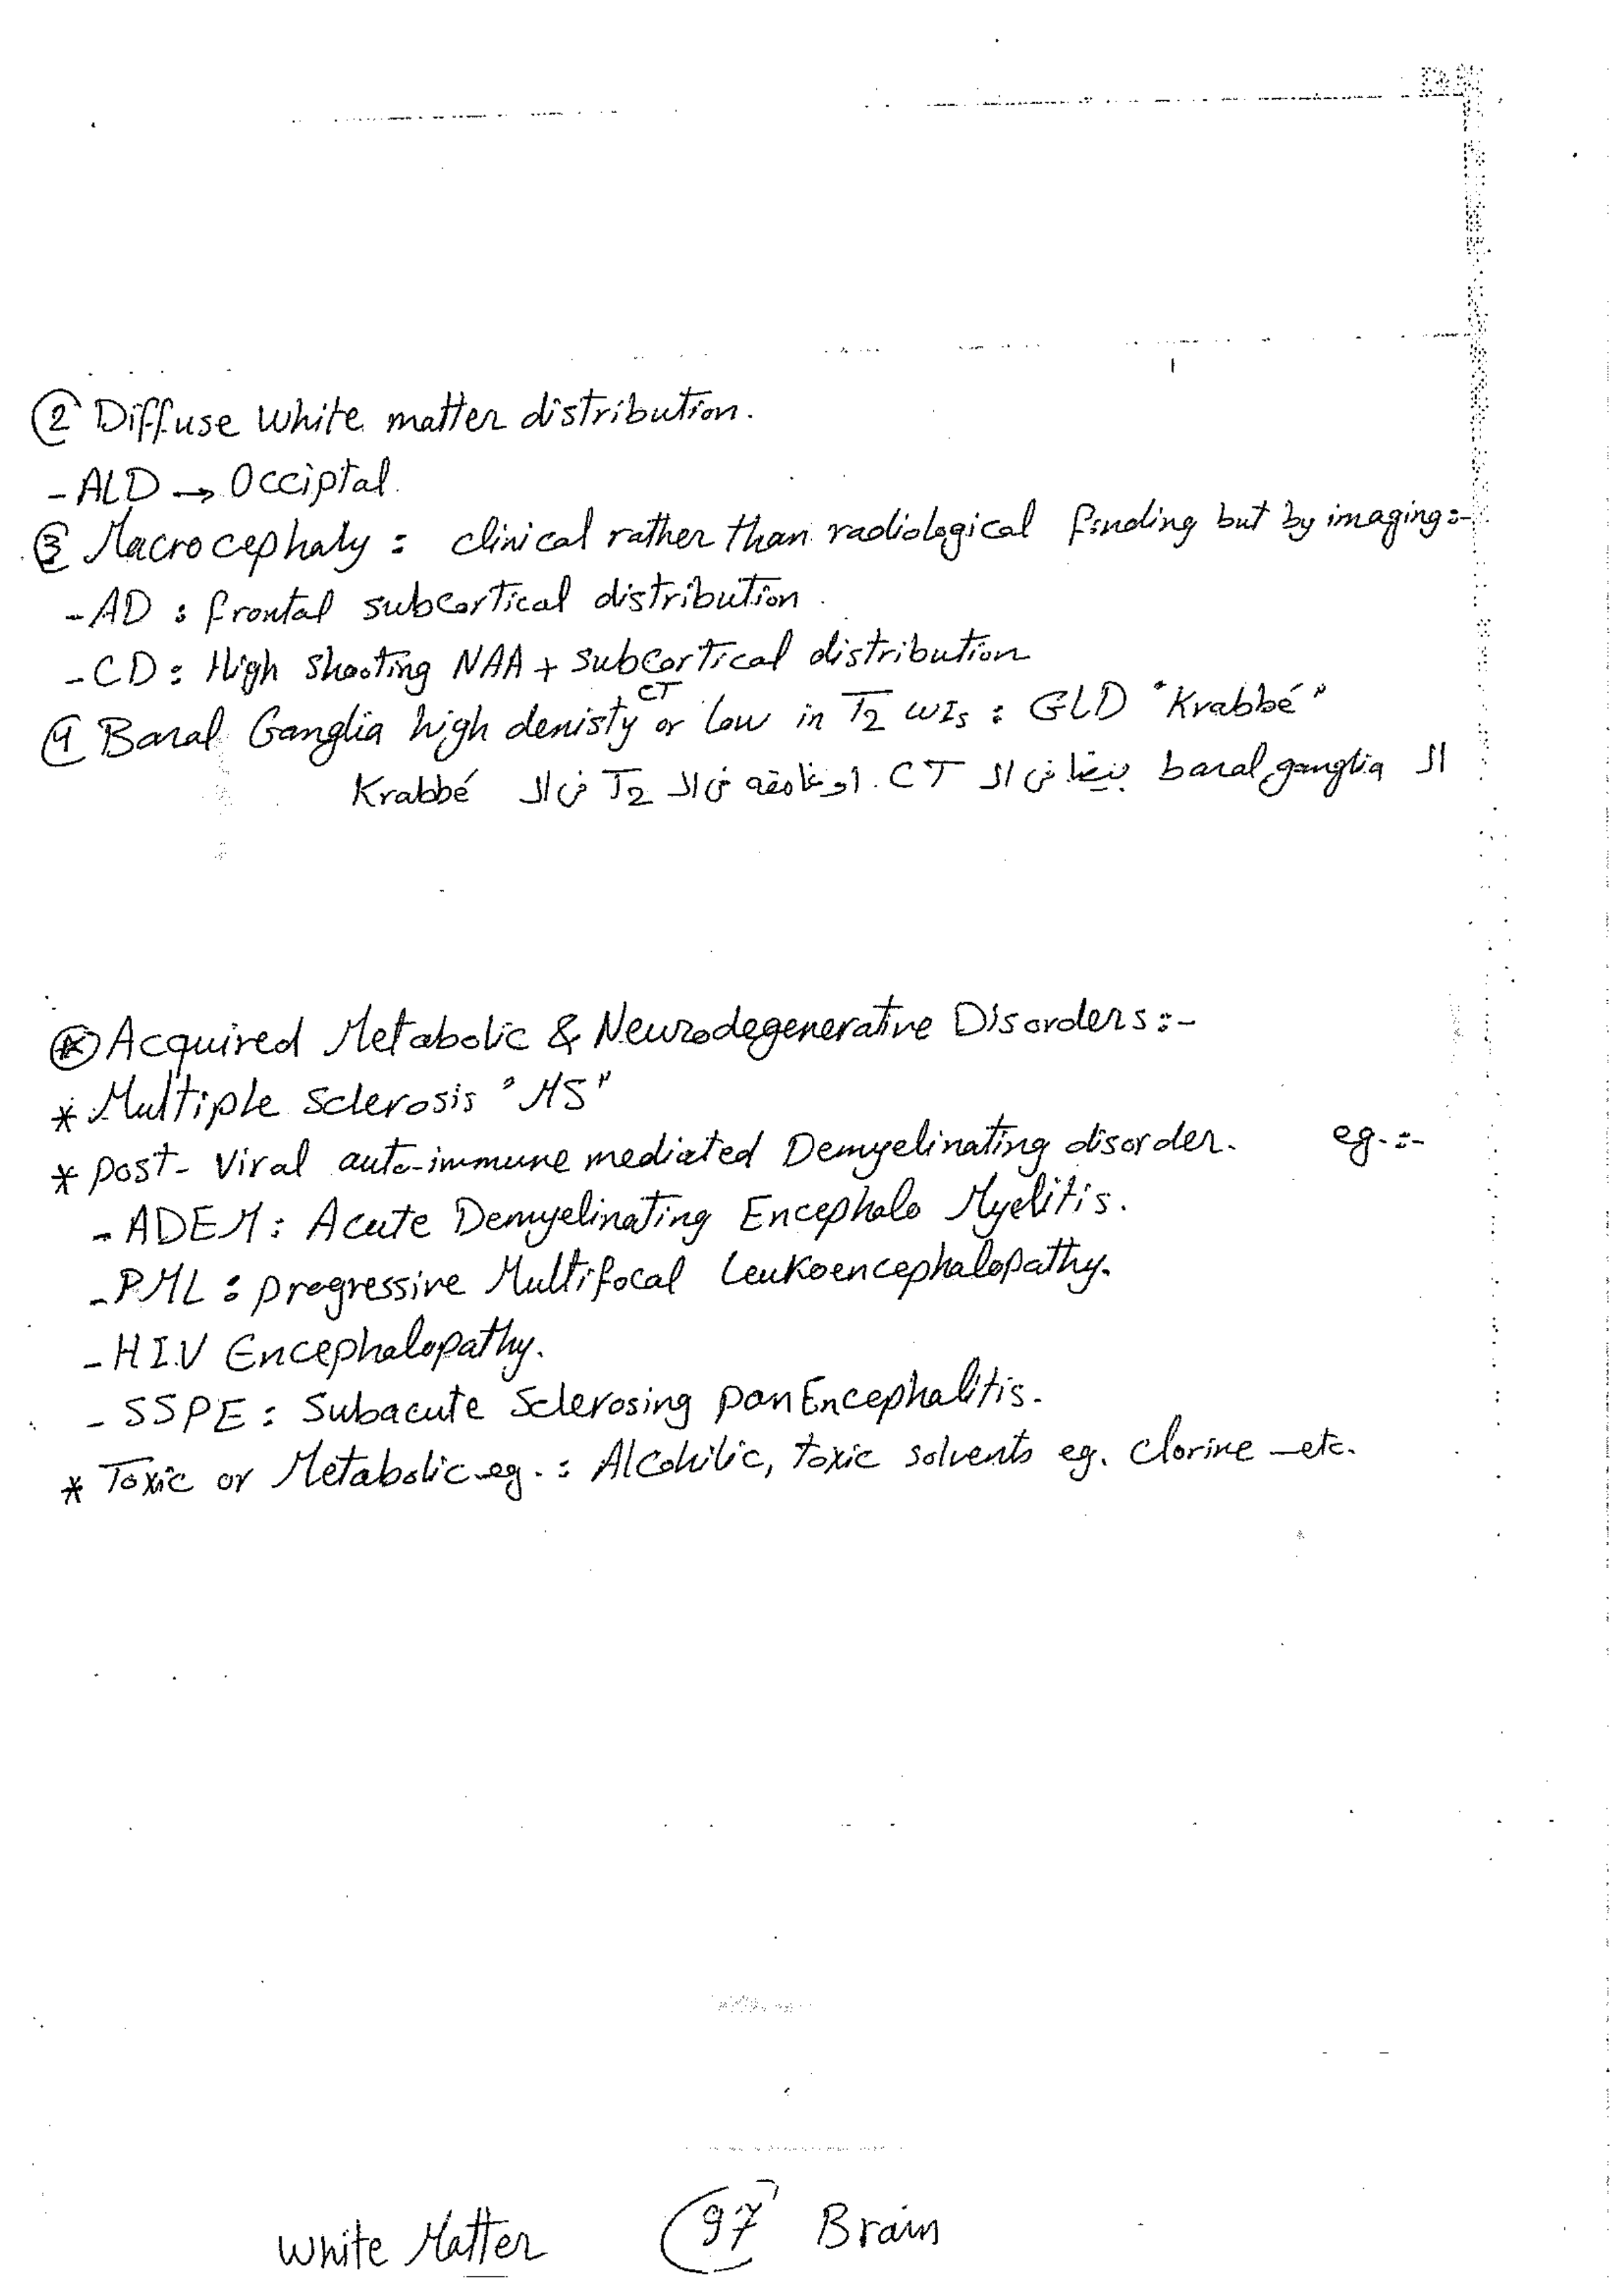 ② Diffuse White matter distribution.
- ALD → Occiptal.
③ Macrocephaly : clinical rather than radiological finding but by imaging:-
- AD : frontal subcortical distribution.
- CD : High shooting NAA + subcortical distribution
④ Basal Ganglia high denisty CT or low in T2 WIs : GLD "Krabbé"
ال basal ganglia بيضا فى ال CT. او غامقه فى ال T2 فى ال Krabbé
⊛ Acquired Metabolic & Neurodegenerative Disorders:-
* Multiple Sclerosis "MS"
* post- Viral auto-immune mediated Demyelinating disorder. eg.:-
- ADEM : Acute Demyelinating Encephalo Myelitis.
- PML : progressive Multifocal Leukoencephalopathy.
- H I.V Encephalopathy.
- SSPE : Subacute Sclerosing panEncephalitis.
* Toxic or Metabolic eg. : Alcohilic, toxic solvents eg. Clorine — etc.
White Matter 97 Brain